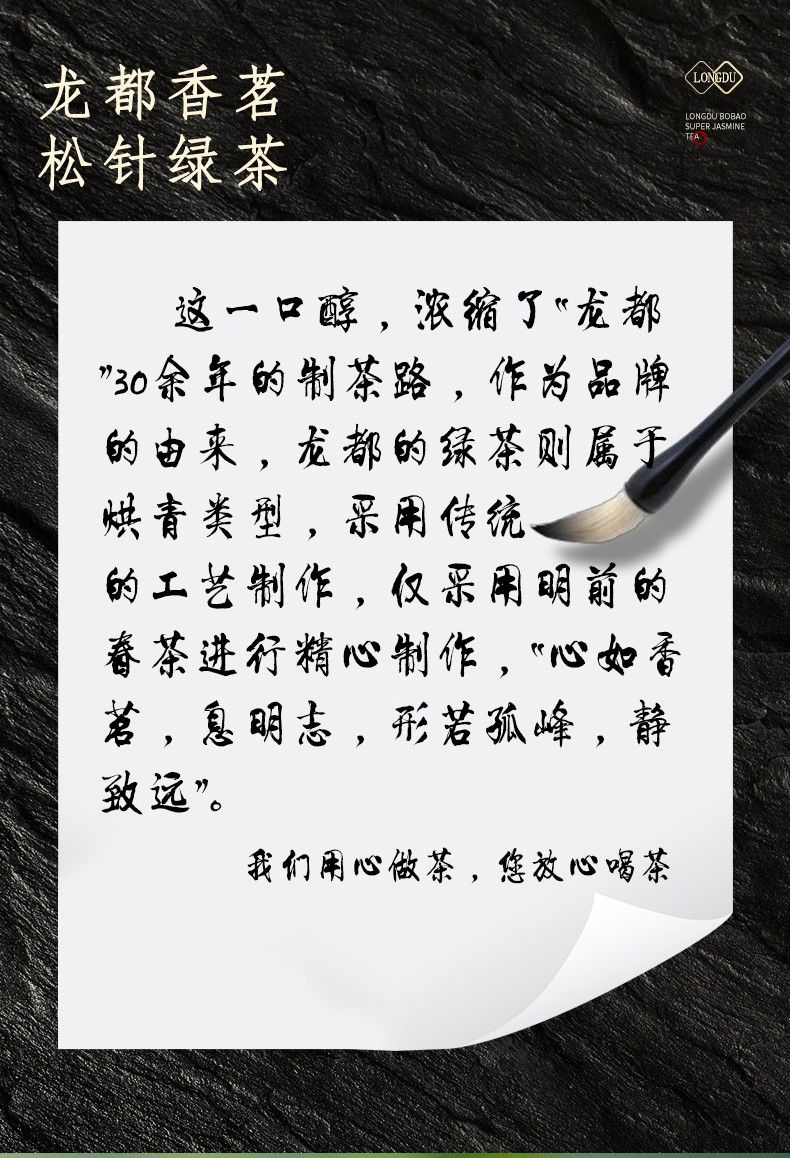 龙都香茗
松针绿茶
LONGDU
LONGDU BOBAO
SUPER JASMINE
TEA
这一口醇，浓缩了“龙都
”30余年的制茶路，作为品牌
的由来，龙都的绿茶则属于
烘青类型，采用传统
的工艺制作，仅采用明前的
春茶进行精心制作，“心如香
茗，息明志，形若孤峰，静
致远”。
我们用心做茶，您放心喝茶